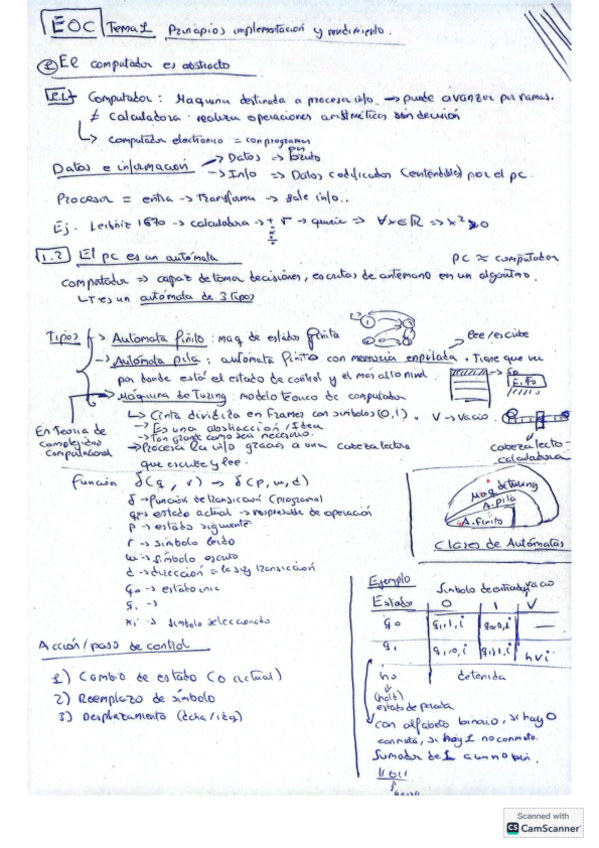 EOC Tema 1 Principios implementación y rendimiento.
El computador es abstracto
Computador: Maquina destinada a procesar info. → puede avanzar por ramas.
≠ calculadora · realiza operaciones aritméticas sin decisión
↳ computador electronico = con programas
Datos e información → Datos ⇒ Bruto
→ Info ⇒ Datos codificados (entendible) por el pc.
Procesar = entra → transforma → sale info..
Ej. Leibniz 1670 → calculadora → ∀x∈ℝ ⇒ x²≥0
1.2 El pc es un autómata pc ≈ computador
computador ⇒ capaz de tomar decisiones, escritas de antemano en un algoritmo.
es un autómata de 3 tipos
Tipos → Automata finito: maq de estados finita
→ Automata pila: autómata finito con memoria apilada. Tiene que ver lee/escribe
por donde está el estado de control y el mas alto nivel.
→ Maquina de Turing: modelo teorico de computador
↳ Cinta dividida en frames con simbolos (0,1). V → Vacio.
→ Es una abstracción/Idea
→ Tan grande como sea necesario.
→ Procesa la info gracias a una cabeza lectora
que escribe y lee.
En Teoria de
Complejidad
Computacional
cabeza lecto-
Función δ(q, r) ⇒ δ(p, w, d)
δ → función de transicion (programa)
q → estado actual → responsable de operación
p → estado siguente
r → simbolo leido
w → simbolo escrito
d → dirección a la sig transicion
q₀ → estado inic
q₁ →
xᵢ → simbolo seleccionado
Maq de Turing
A. Pila
A. Finito
Clases de Autómatas
Acción/paso de control
1) Cambio de estado (o actual)
2) Reemplazo de símbolo
3) Desplazamiento (dcha/izq)
Ejemplo
Simbolo de entrada vacio
Estado 0 1 V
q₀ q₁,1,i q₀,0,i —
q₁ q₁,0,i q₁,1,i h v i
ho detenida
(halt)
estado de parada
con alfabeto binario, si hay 0
conmuta, si hay 1 no conmuta.
Sumador de 1 a un no bin.
Scanned with
CS CamScanner